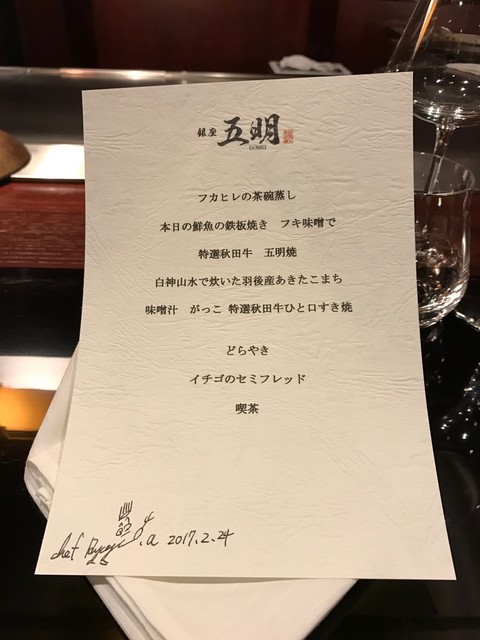 銀座 五明
GOMEI
フカヒレの茶碗蒸し
本日の鮮魚の鉄板焼き　フキ味噌で
特選秋田牛　五明焼
白神山水で炊いた羽後産あきたこまち
味噌汁　がっこ 特選秋田牛ひと口すき焼
どらやき
イチゴのセミフレッド
喫茶
chef
2017.2.24